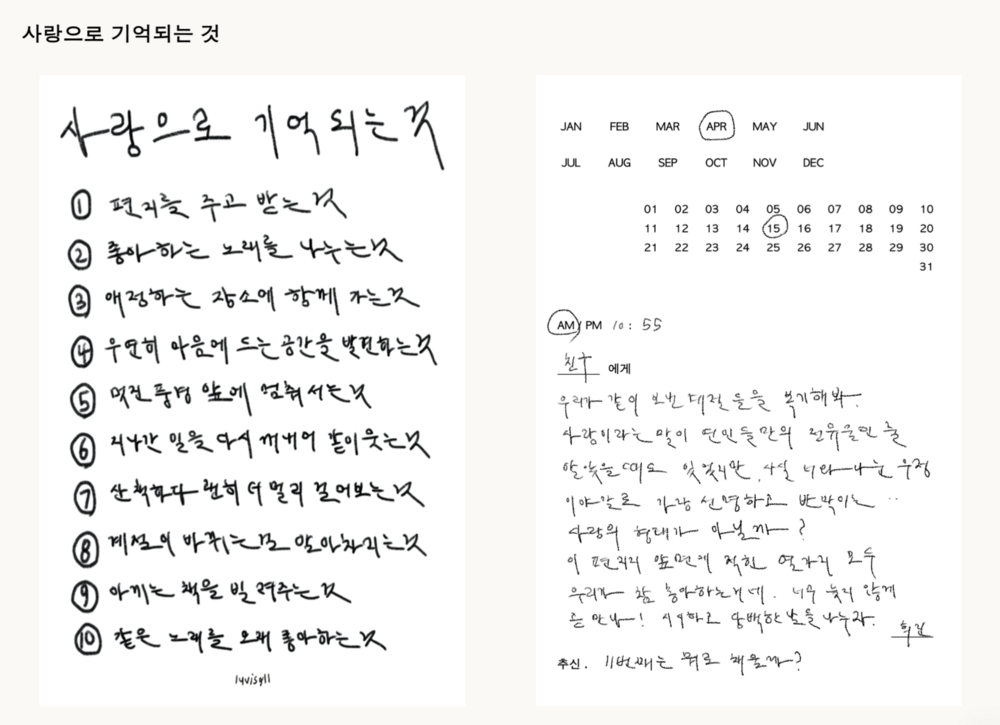 사랑으로 기억되는 것
사랑으로 기억되는 것
① 편지를 주고 받는 것
② 좋아하는 노래를 나누는 것
③ 애정하는 장소에 함께 가는 것
④ 우연히 마음에 드는 공간을 발견하는 것
⑤ 멋진 풍경 앞에 멈춰 서는 것
⑥ 지나간 일을 다시 꺼내어 같이 웃는 것
⑦ 산책하다 괜히 더 멀리 걸어보는 것
⑧ 계절이 바뀌는 걸 알아차리는 것
⑨ 아끼는 책을 빌려주는 것
⑩ 같은 노래를 오래 좋아하는 것
JAN FEB MAR APR MAY JUN
JUL AUG SEP OCT NOV DEC
01 02 03 04 05 06 07 08 09 10
11 12 13 14 15 16 17 18 19 20
21 22 23 24 25 26 27 28 29 30
31
AM/PM 10:55
친구 에게
우리가 같이 보낸 대전 들을 복기해봐.
사랑이라는 말이 연인들만의 전유물인 줄
알았을 때도 있었지만, 사실 너와 나눈 우정
이야말로 가장 선명하고 반짝이는 ..
사랑의 형태가 아닐까?
이 편지지 앞면에 적힌 열가지 모두
우리가 참 좋아하는건데. 너무 늦지 않게
또 만나! 시시하고 담백한 날들을 나누자.
추신. 11번째는 뭐로 채울까?